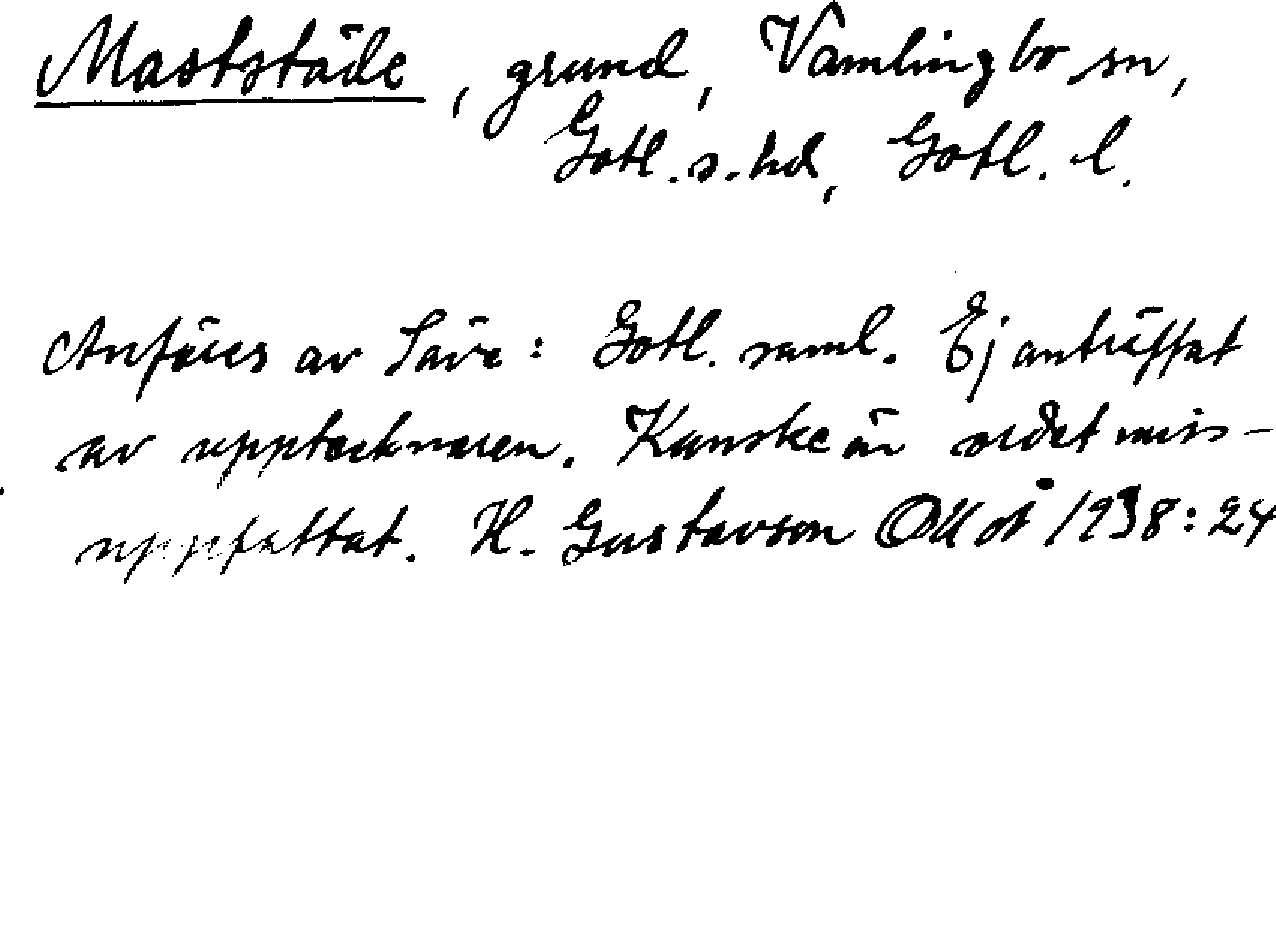 Maststäde, grund, Vamlingbo sn,
Gotl. s. hd, Gotl. l.
Anföres av Säve: Gotl. saml. Ej anträffat
av upptecknaren. Kanske är ordet miss-
uppfattat. H. Gustavson 1938:24